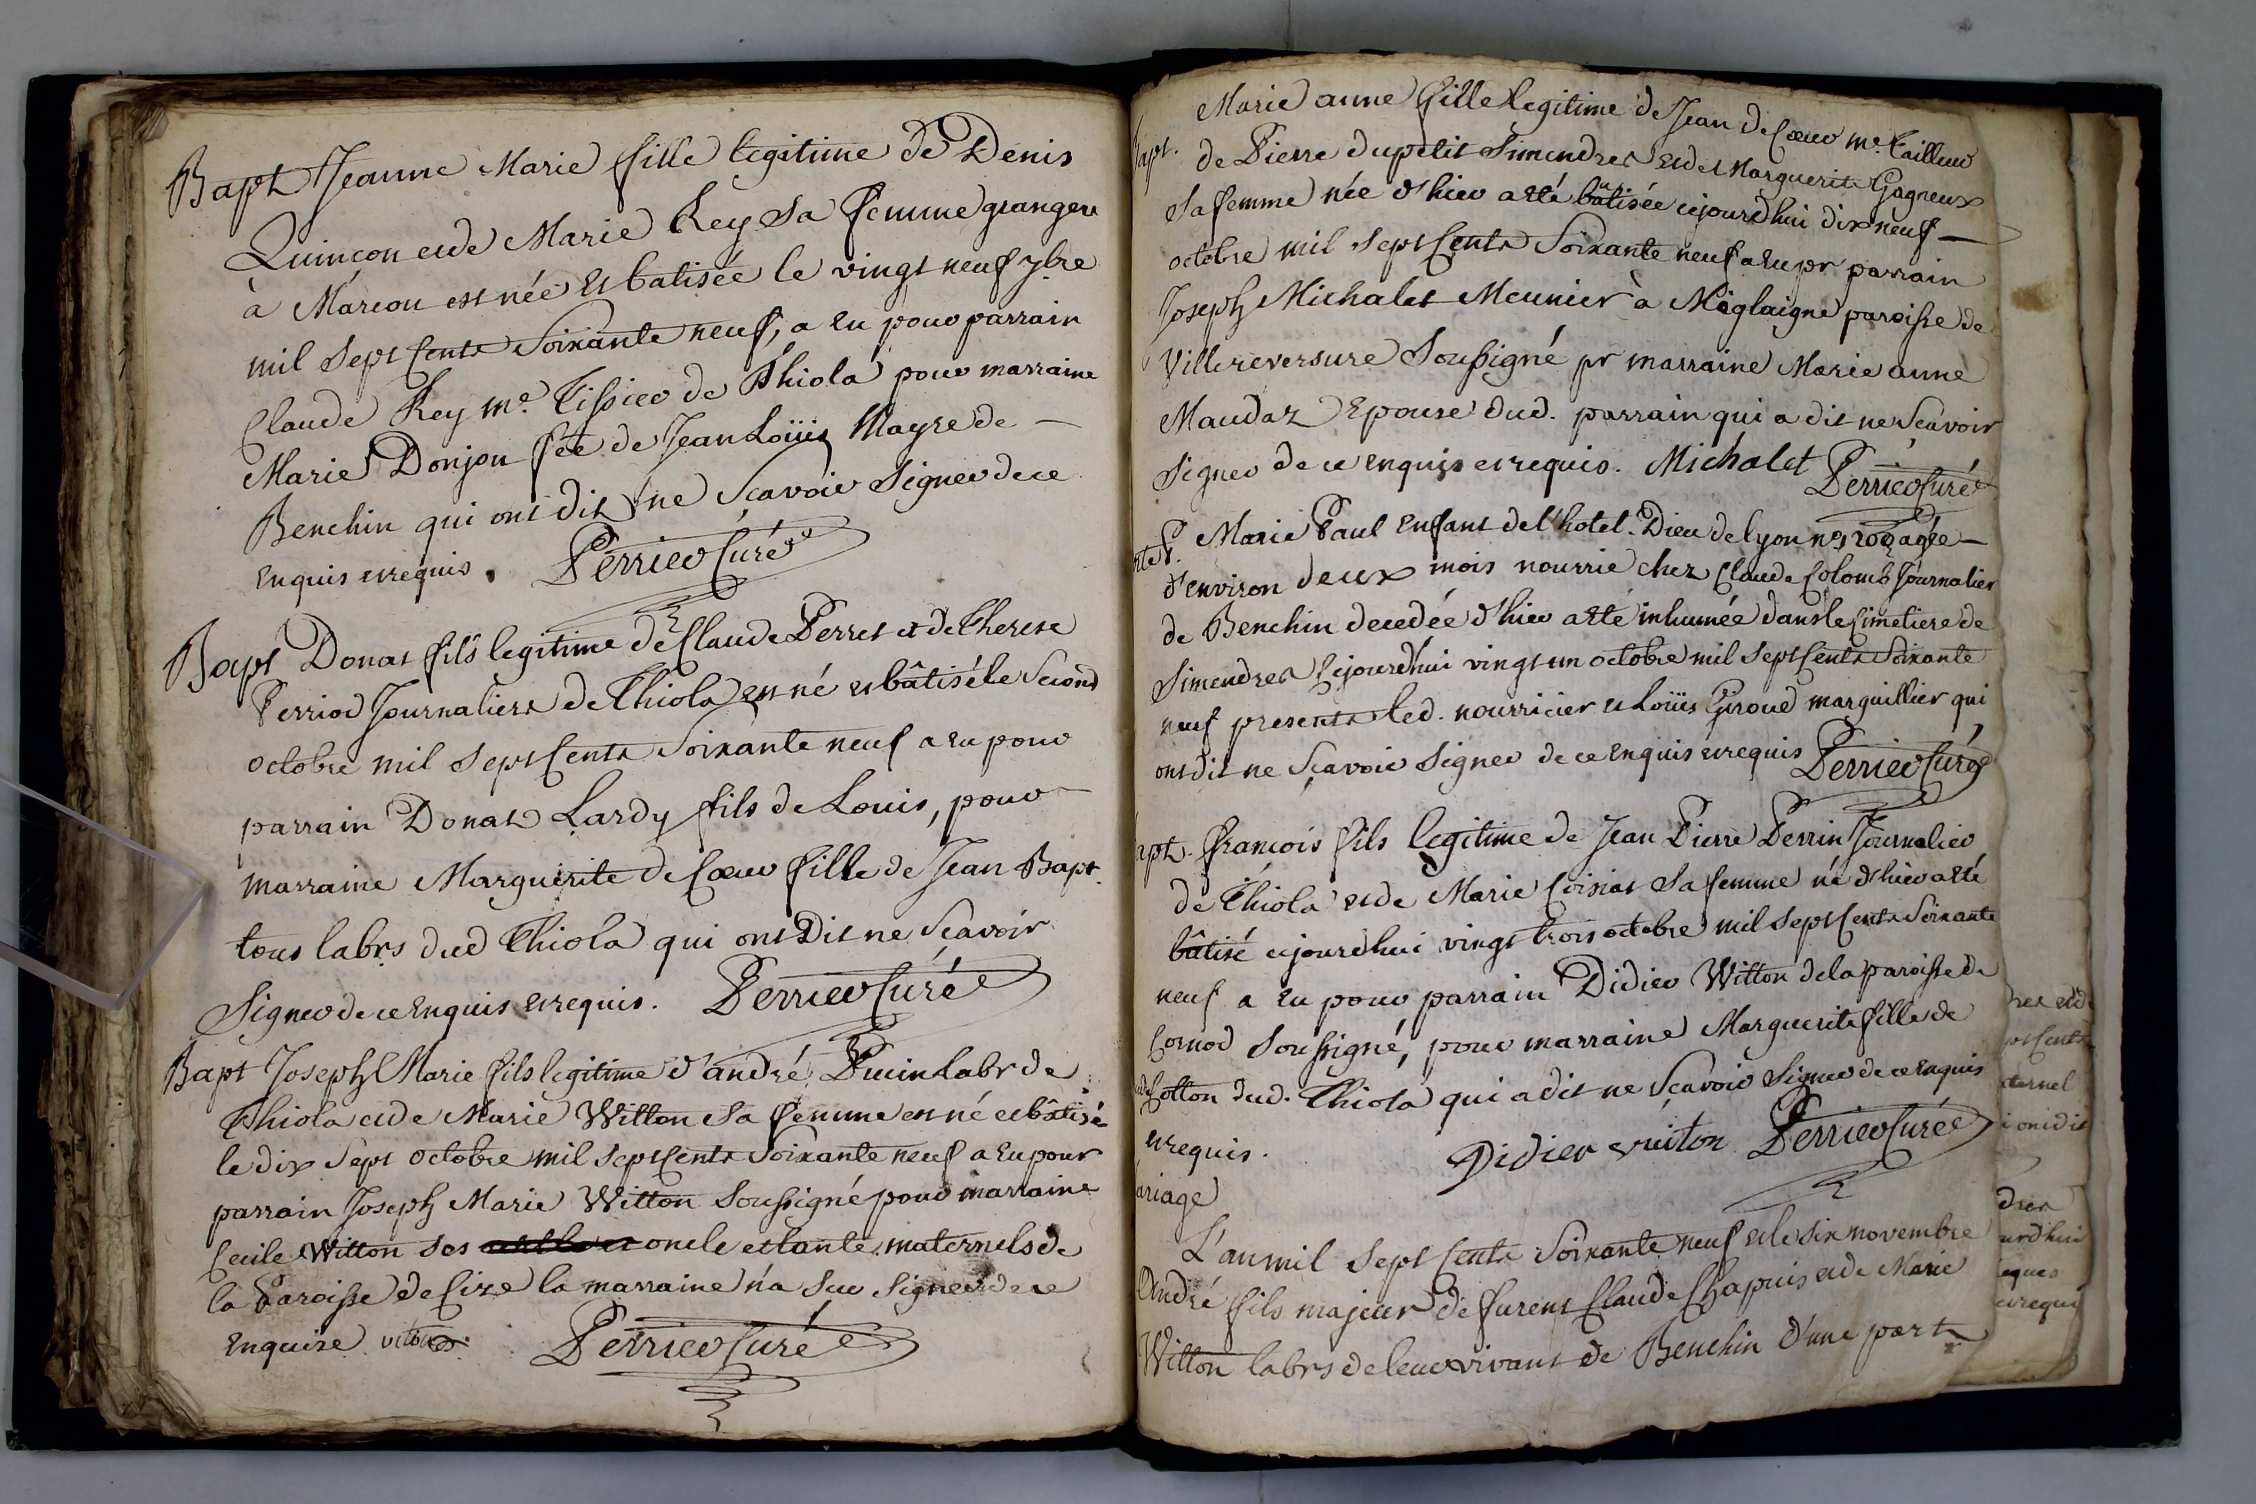 Bapt Jeanne Marie fille legitime de Denis
Quinçon et de Marie Rey sa femme grangers
à Marcou est née et batisée le vingt neuf 7bre
mil sept cents soixante neuf, a eu pour parrain
Claude Rey me. Tissier de Thiola pour marraine
Marie Donjon fée de Jean Loüis Mayre de
Benchin qui ont dit ne Scavoir Signer de ce
enquis et requis. Perrier Curé
Bapt Donat fils legitime de Claude Perret et de Therese
Perriod Journaliers de Thiola est né et bâtisé le Second
octobre mil sept Cents soixante neuf a eu pour
parrain Donat Lardy fils de Louis, pour
marraine Marguerite de Coeur fille de Jean Bapt.
tous labrs dud Thiola qui ont Dit ne Scavoir
Signer de ce enquis et requis. Perrier Curé
Bapt Joseph Marie fils legitime d'andré Puin Labr de
Thiola et de Marie Witton Sa femme est né et bâtisé
le dix Sept octobre mil sept Cents soixante neuf a eu pour
parrain Joseph Marie Witton Soussigné pour marraine
Cecile Witton ses oncle et tante maternels de
la Paroisse de Cize la marraine n'a Sceu Signer de ce
enquise. viton Perrier Curé
Marie anne fille legitime de Jean de Coeur me. Tailleur
Bapt. de Pierre du petit Simandres et de Marguerite Gagneux
Sa femme née d'hier a eté batisée cejourd'hui dix neuf
octobre mil sept Cents soixante neuf a eu pr parrain
Joseph Michalet Meunier à Moglaigne paroisse de
Villereversure Soussigné pr marraine Marie anne
Maudaz Epouse dud. parrain qui a dit ne Scavoir
Signer de ce enquis et requis. Michalet Perrier Curé
Marie Paul Enfant de l'hotel-Dieu de lyon agée
d'environ deux mois nourrie chez Claude Colomb Journalier
de Benchin decedée d'hier a eté inhumée dans le Cimetiere de
Simandres Cejourd'hui vingt un octobre mil sept Cents soixante
neuf presents led. nourricier et Loüis Giroud marguillier qui
ont dit ne Scavoir Signer de ce enquis et requis Perrier Curé
apt. francois fils legitime de Jean Pierre Perrin Journalier
de Thiola et de Marie Coisiat Sa femme né d'hier a eté
bâtisé cejourd'hui vingt trois octobre mil sept Cents soixante
neuf a eu pour parrain Didier Witton de la paroisse de
Cornod Soussigné, pour marraine Marguerite fille de
Cotton dud. Thiola qui a dit ne Scavoir Signer de ce enquis
et requis. Didier vuiton Perrier Curé
ariage
L'an mil Sept Cents Soixante neuf et le six novembre
André fils majeur de furent Claude Chapuis et de Marie
Witton labrs de leur vivant de Benchin d'une part